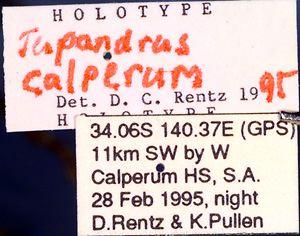 HOLOTYPE
Tapandrus
calperum
Det. D. C. Rentz 1995
HOLOTYPE
34.06S 140.37E (GPS)
11km SW by W
Calperum HS, S.A.
28 Feb 1995, night
D.Rentz & K.Pullen